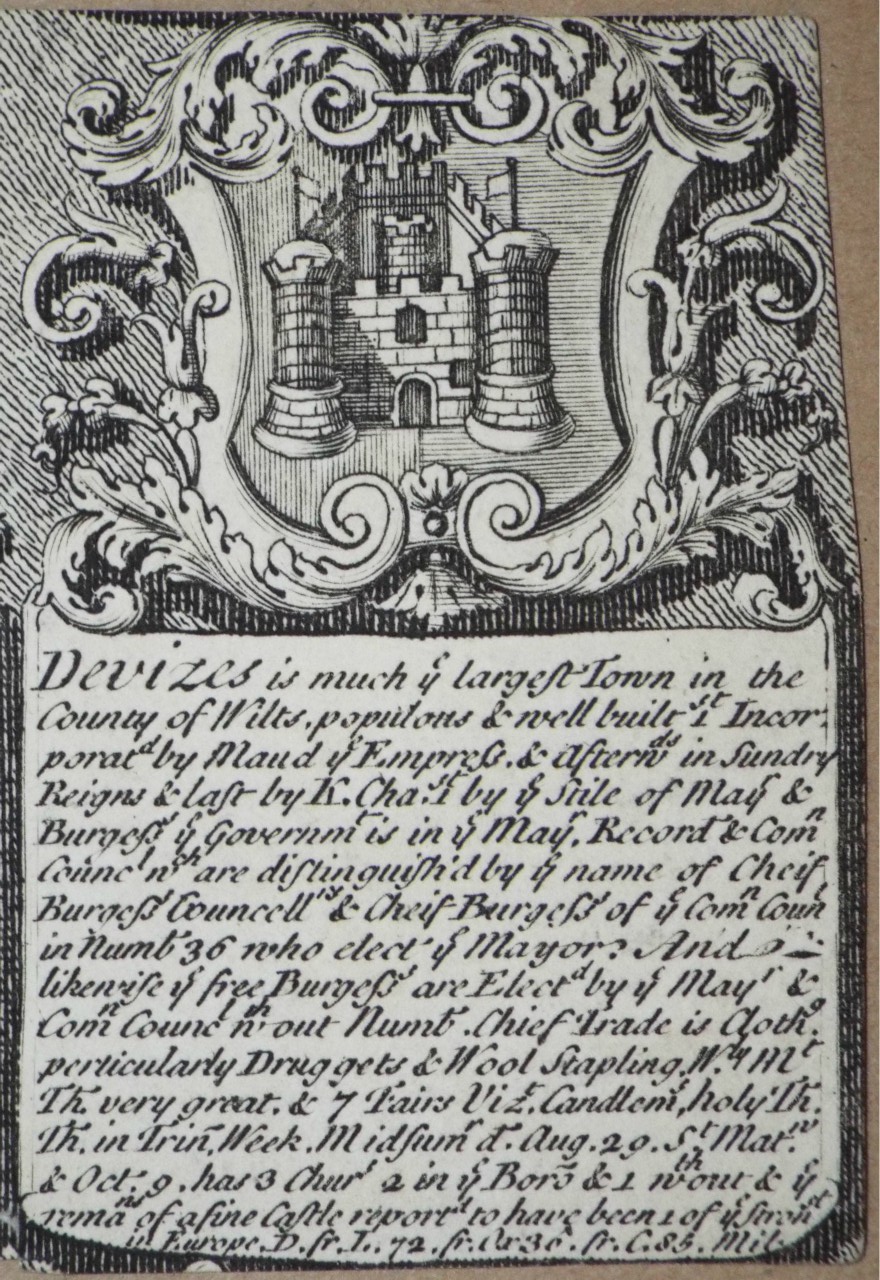 Devizes is much yͤ largeſt Town in the
County of Wilts, populous & well built 1ˢᵗ Incor-
poratᵈ by Maud yͤ Empreſs. & Afterwᵈˢ in Sundry
Reigns & laſt by K. Cha. 1ˢᵗ by yͤ Stile of Mayʳ & 
Burgeſsˢ yͤ Governmᵗ is in yͤ Mayʳ, Recordʳ & Comⁿ
Councˡ wᶜʰ are diſtinguiſh'd by yͤ name of Cheif
Burgeſsˢ Councellʳˢ & Cheif Burgeſsˢ of yͤ Comⁿ Counˡ
in Numbʳ 36 who elect yͤ Mayor: And
likewiſe yͤ free Burgeſsˢ are Electᵈ by yͤ Mayʳ &
Comⁿ Councˡ wᵗʰout Numbʳ. Chief Trade is Clothᵍ.
perticularly Druggets & Wool Stapling, W.ʸ Mᵗ
Th. very great. & 7 Fairs Vizᵗ. Candlemˢ, holy Th.
Th. in Trinʸ, Week. Midſumʳ d. Aug. 29. Sᵗ Matʷ.
& Octʳ. 9. has 3 Churˢ 2 in yͤ Borō & 1 wᵗʰout & yͤ
remaⁿˢ of a fine Caſtle reportᵈ to have been 1 of yͤ Stronˢᵗ
in Europe. D. fr. L. 72. fr. Ox 30. fr. C. 85. Mil.